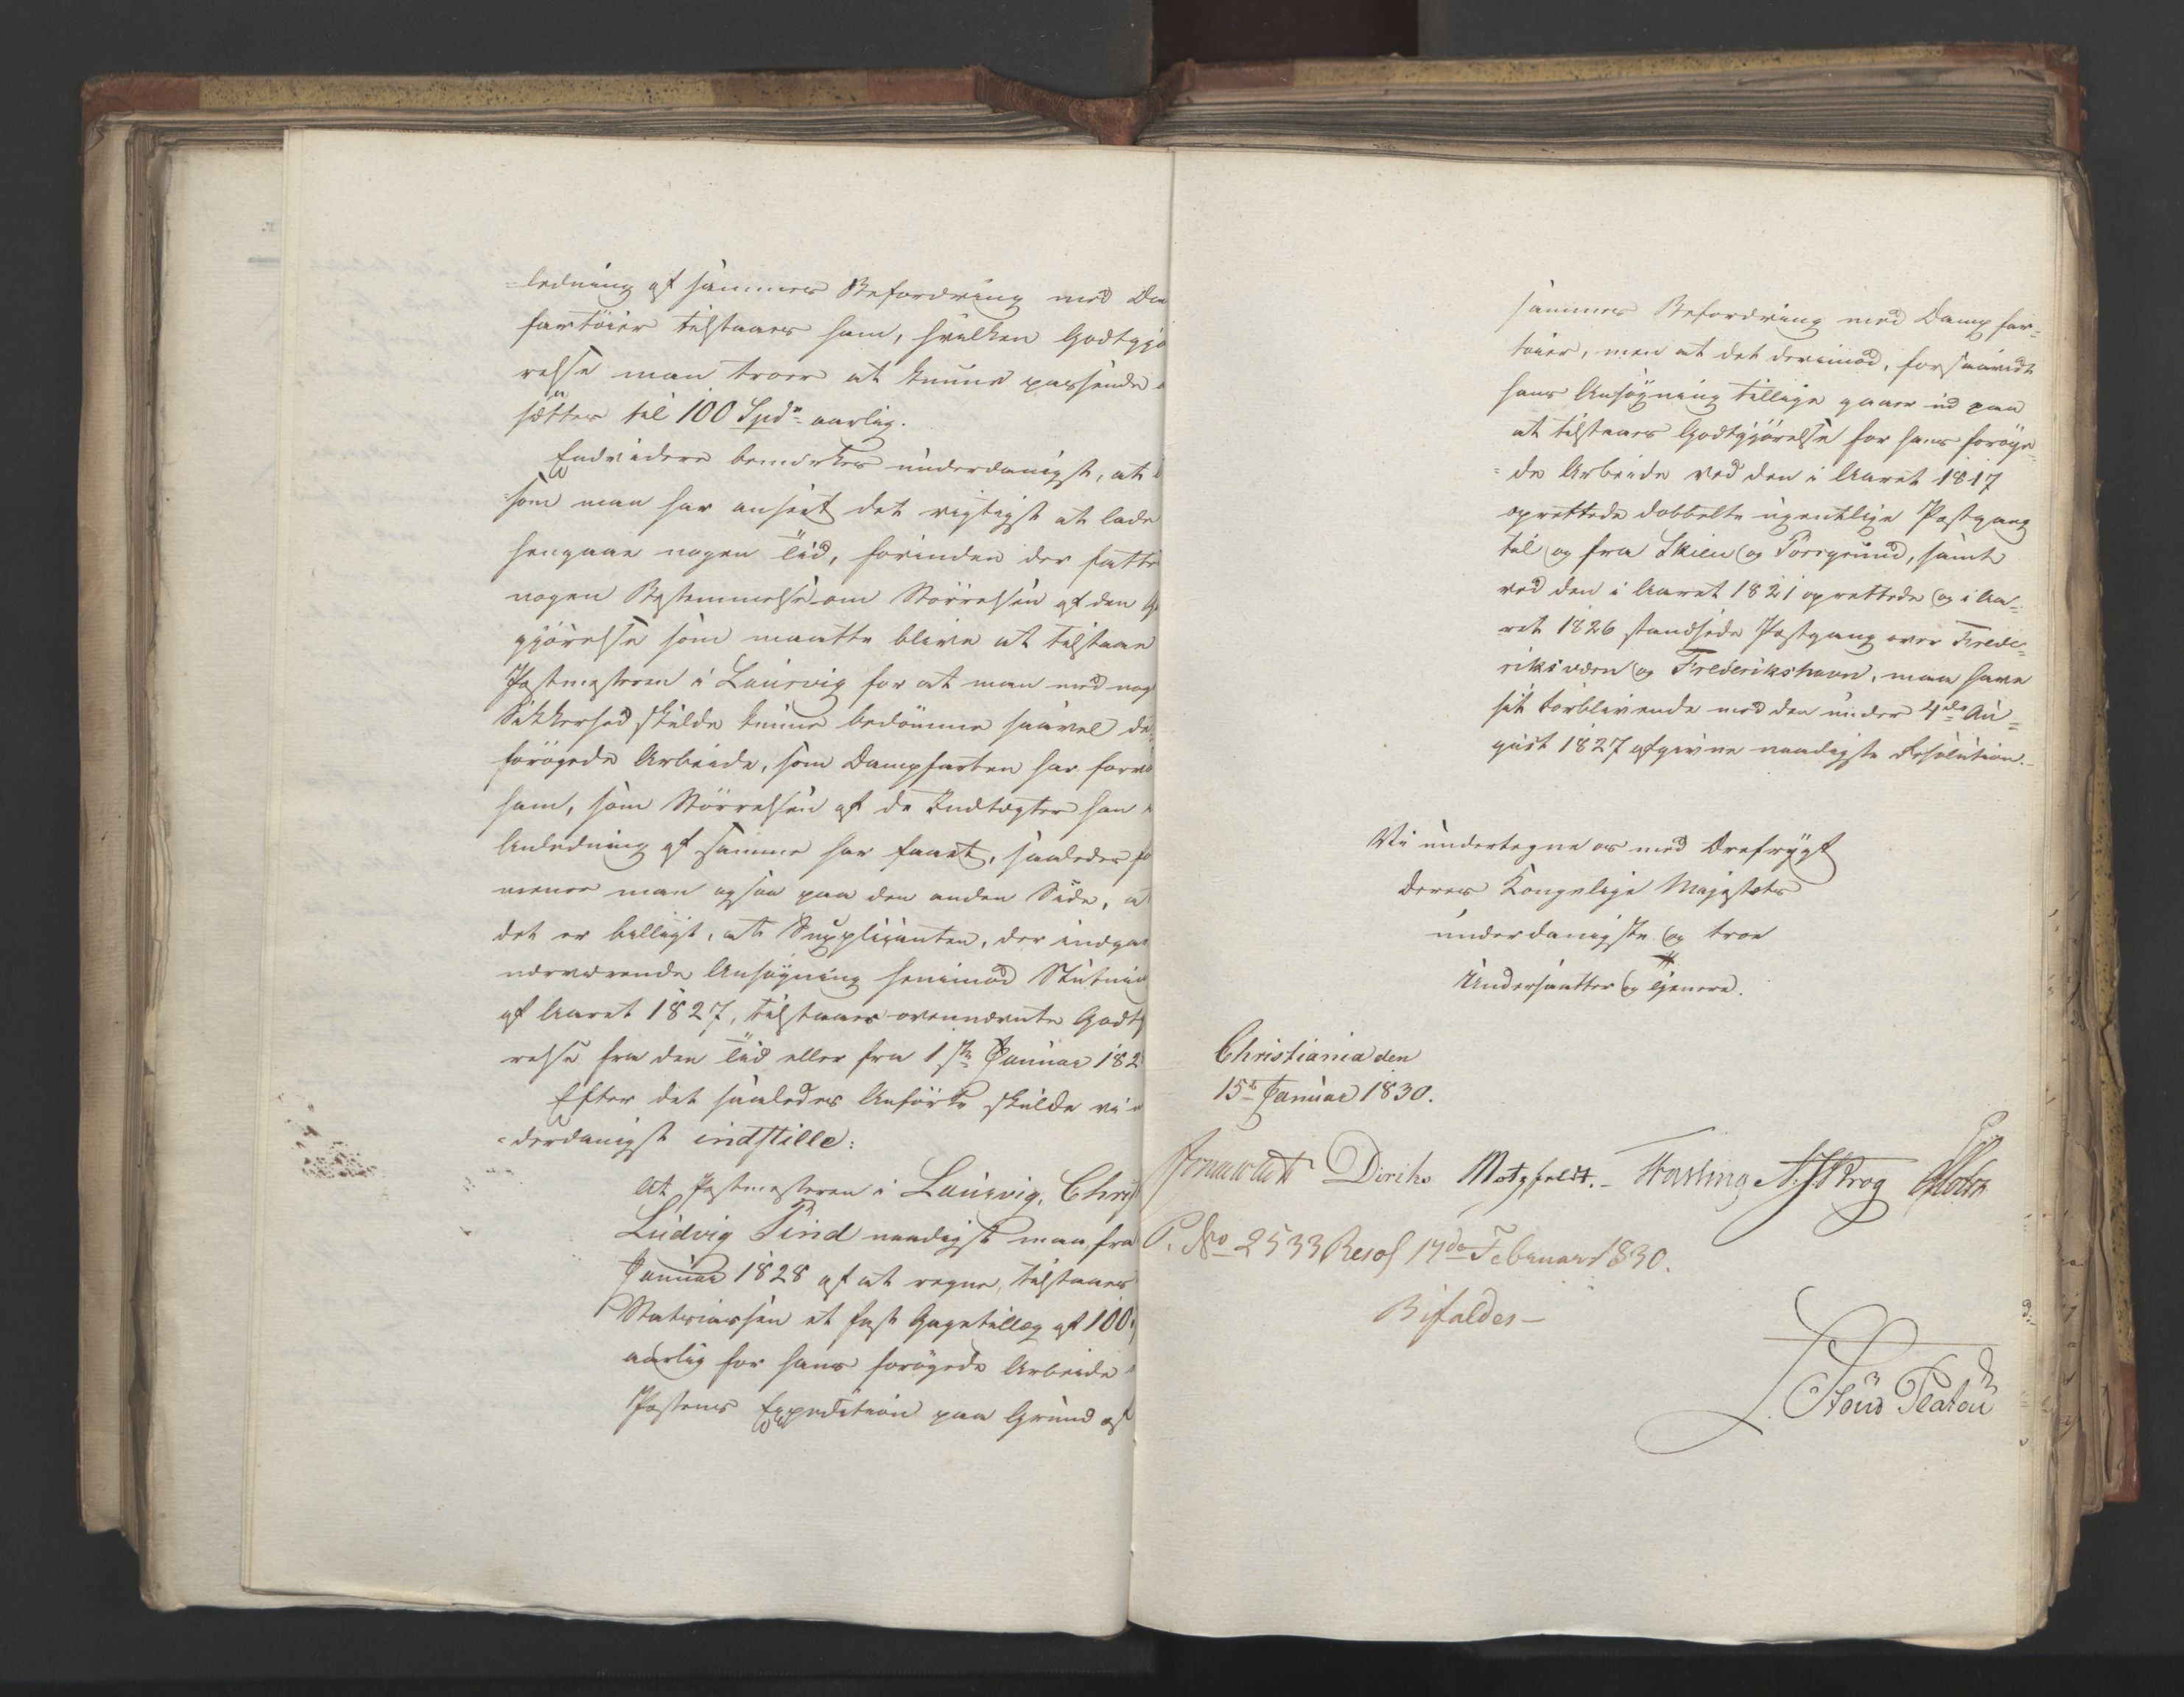 =ledning af sammes Befordring med Dam
fartöier tilstaaes ham, hvilken Godtgjö
relse man troer at kunne passende
sættes til 100 Spd. aarlig.
Endvidere bemærkes underdanigst, at
=som man har anseet det rigtigst at lade
hengaae nogen Tid, forinden der fattes
nogen Bestemmelse om Störrelsen af den
gjörelse som maatte blive at tilstaae
Postmesteren i Laurvig for at man med
Sikkerhed skulde kunne bedömme saavel de
forögede Arbeide, som Dampfarten har
ham, som Störrelsen af de Indtægter han
Anledning af samme har faaet, saaledes
mener man ogsaa paa den anden Side, at
det er billigt, at Supplicanten, der indgav
nærværende Ansögning henimod Slutningen
af Aaret 1827, tilstaaes ovennævnte
relse fra den Tid eller fra 1ste Januar 182
Efter det saaledes Anförte skulde vi
=derdanigst indstille:
At Postmesteren i Laurvig, Christ
Ludvig Tind naadigst maa, fra
Januar 1828 af at regne, tilstaaes
Statscassen et fast Gagetillæg af 100
aarlig for hans forögede Arbeide
Postens Expedition paa Grund af
sammes Befordring med Dampfar=
töier, men at det derimod, forsaavidt
hans Ansögning tillige gaaer ud paa
at tilstaaes Godtgjörelse for hans foröge=
=de Arbeide ved den i Aaret 1817
oprettede dobbelte ugentlige Postgang
til og fra Skien og Porsgrund, samt
ved den i Aaret 1821 oprettede og i Aa=
ret 1826 standsede Postgang over Frede=
riksværn og Frederikshavn, maa have
sit Forblivende med den under 4de Au=
gust 1827 afgivne naadigste Resolution.-
Vi undertegne os med Ærefrygt
Deres Kongelige Majestæts
underdanigste og troe
Undersaatter og Tjenere.
Christiania den
15de Januar 1830.
Diriks Motzfeldt.- Fasting N. J. Krog Holst
P. No 2533 Resol 17de Februar 1830.
Bifaldes-